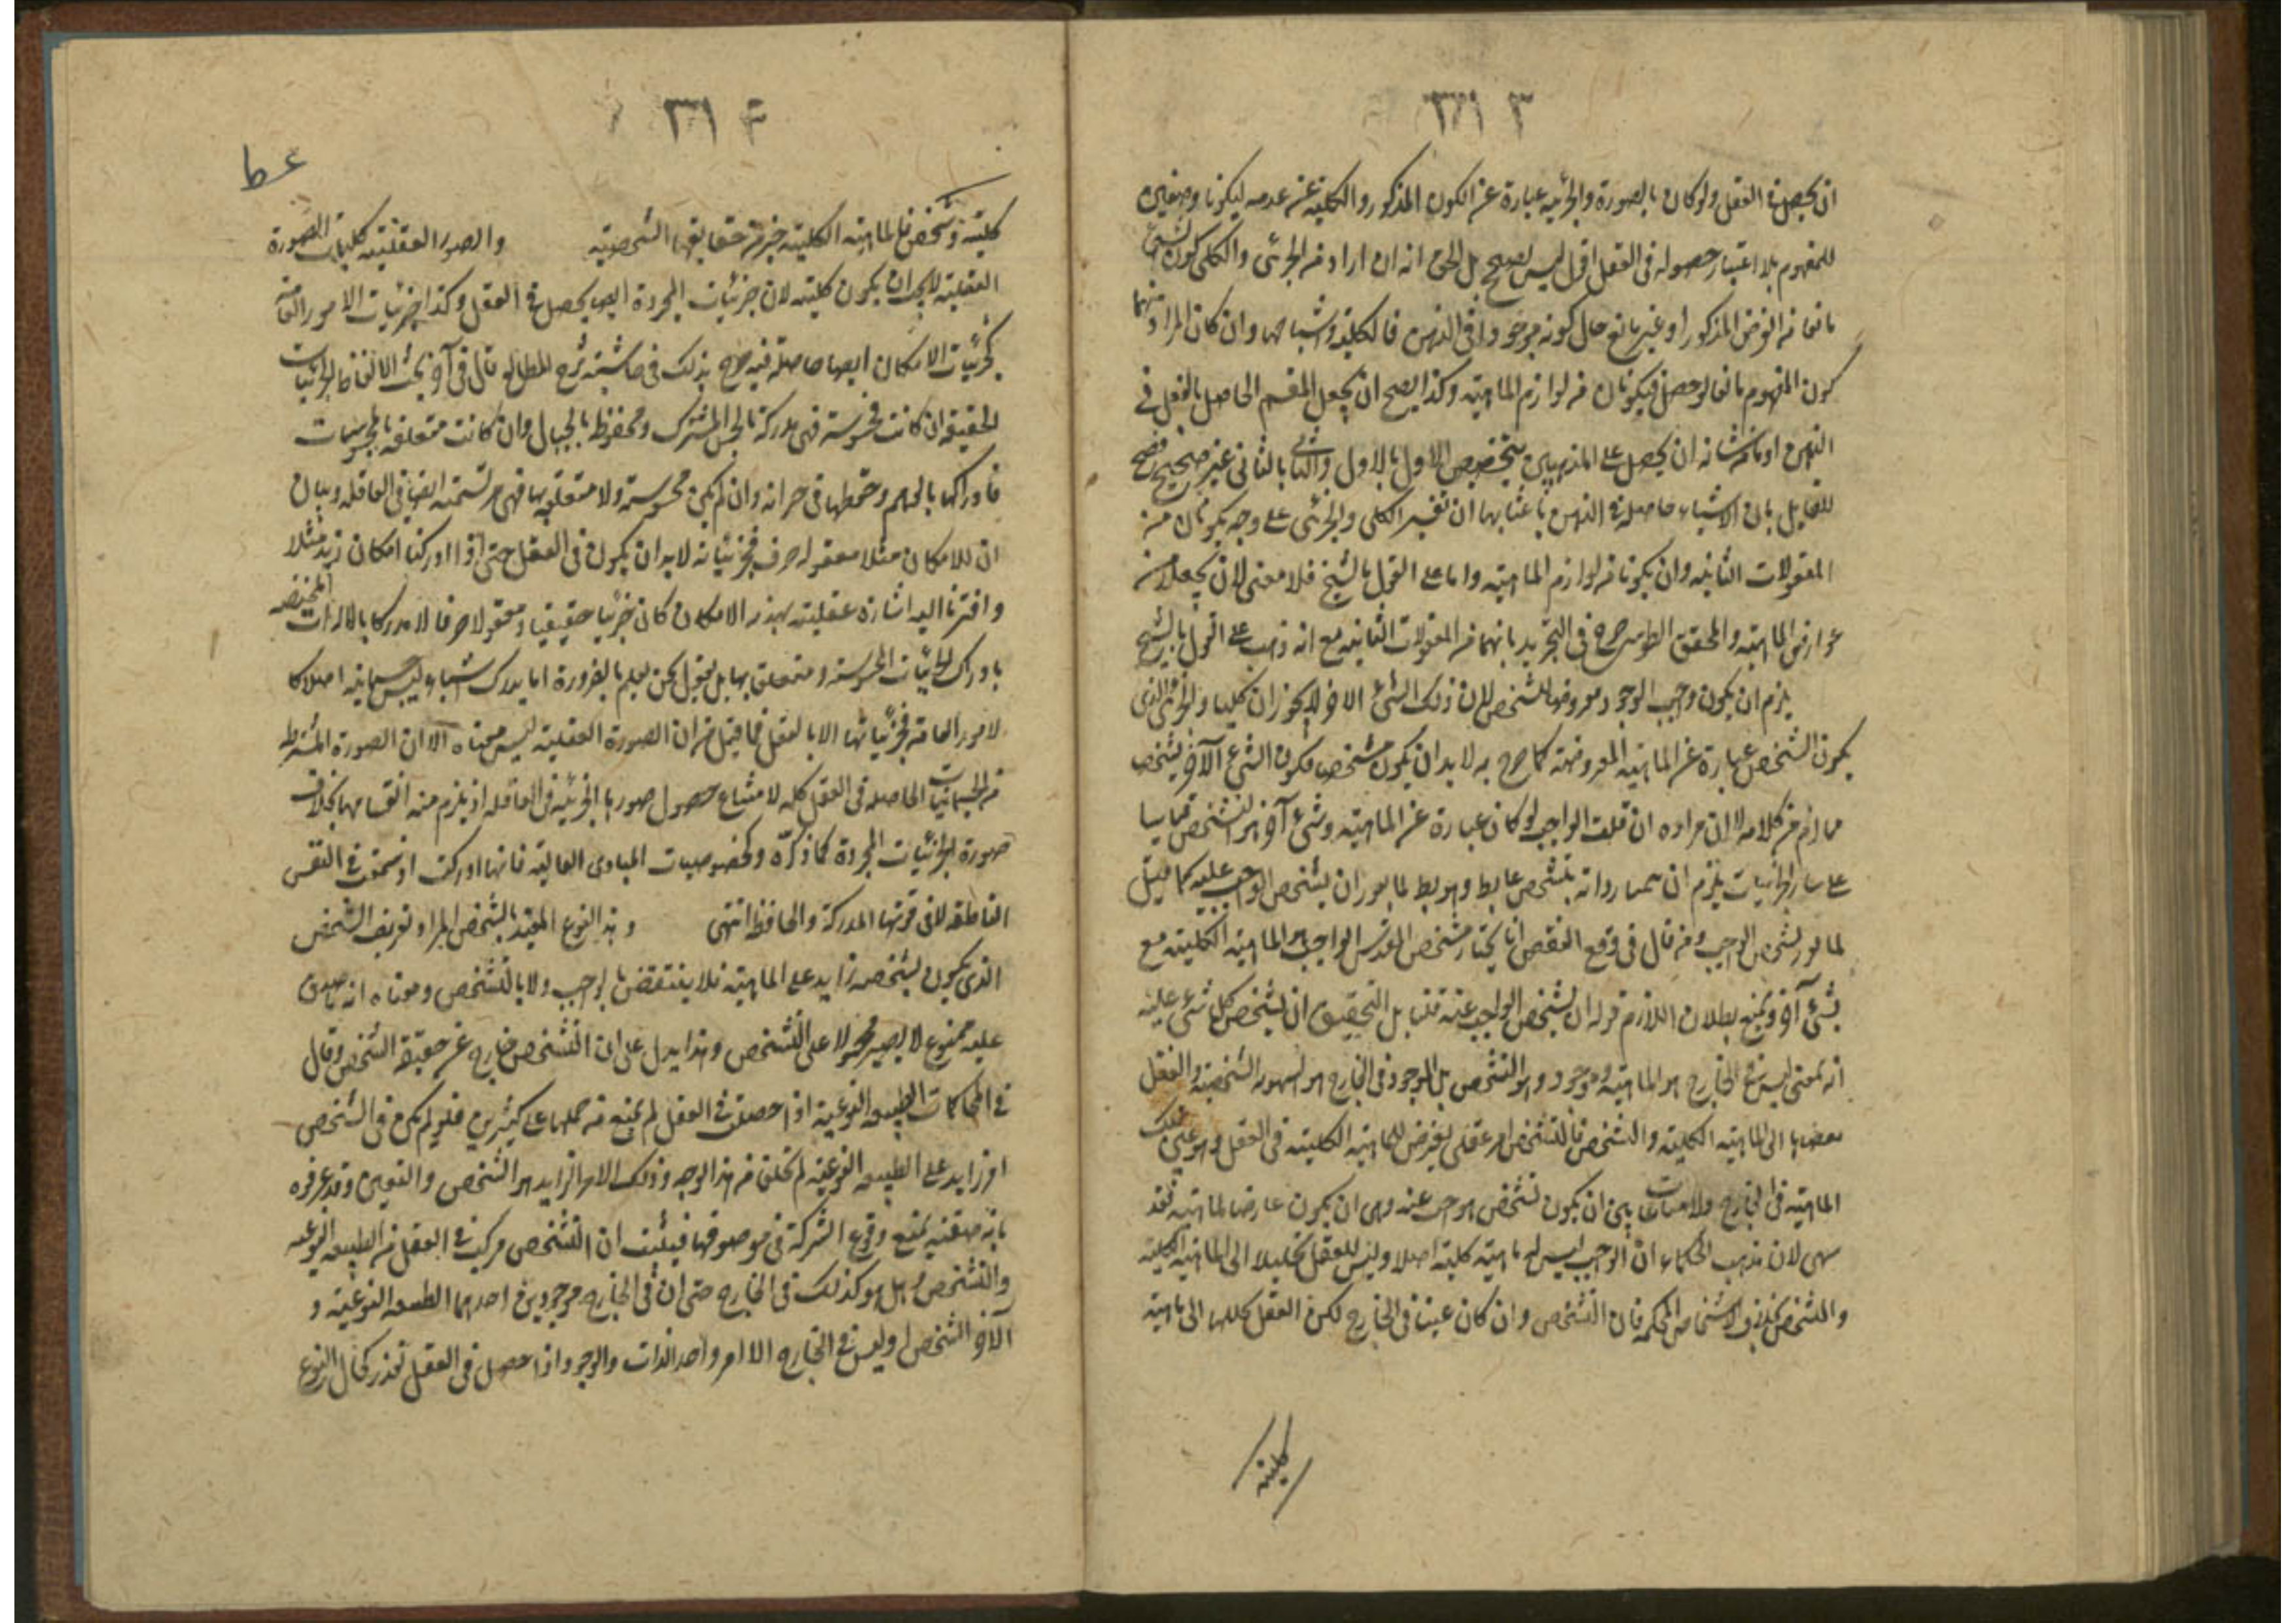 ٣١٣
ان يحصل في العقل ولو كان بالصورة والجزئية عبارة عن الكون المذكور والكلية عن عدمه ليكونا وصفين
للمفهوم بلا اعتبار حصوله في العقل اقول ليس بصحيح بل الحق انه ان اراد من الجزئي والكلي كون الشئ
مانعا من الفرض المذكور او غير مانع حال كونه موجودا في الذهن فالكلية وان كان المراد منهما
كون المفهوم مانعا لو حصل فيكونان من لوازم الماهية وكذا يصح ان يجعل المقسم الحاصل بالفعل في
الذهن او ما من شانه ان يحصل على المذهبين بتخصيص الاول بالاول والثاني بالثاني غير صحيح
للقايل بان الاشياء حاصلة في الذهن ان تفسير الكلي والجزئي على وجه يكونان من
المعقولات الثانية وان يكونا من لوازم الماهية واما على القول بالشبح فلا معنى لان يجعلا من
عوارض الماهية والمحقق الطوسي صرح في التجريد بانهما من المعقولات الثانية مع انه ذهب على القول بالشبح
يلزم ان يكون واجب الوجود معروضا للتشخص لان ذلك الشئ الاخر لا يجوز ان كليا والجزئي الذي
يكون الشخص عبارة عن الماهية المعروضة كما صرح به لا بد ان يكون متشخص فيكون الشئ الآخر تشخص
من كلامه لا ان مراده ان قلت الواجب لو كان عبارة عن الماهية وشئ آخر هو التشخص قياسا
على ساير الجزئيات يلزم ان
بشئ آخر ويمنع بطلان اللازم قوله ان تشخص الواجب عينه قلنا بل التحقيق ان تشخص كل شئ عينه
انه بمعنى ليس في الخارج هو الماهية وموجود وهو التشخص بل الموجود في الخارج هو الشخصية والعقل
الى الماهية الكلية والتشخص فالتشخص امر عقلي يعرض للماهية الكلية في العقل وهو عين تلك
الماهية في الخارج ولا ان يكون تشخص الواجب عينه وبين ان يكون عارضا لماهية فقد
سهى لان مذهب الحكماء ان الواجب ليس له ماهية كلية اصلا وليس للعقل تحليلا الى الماهية الكلية
والتشخص بخلاف الاشخاص الممكنة فان التشخص وان كان عينا في الخارج لكن العقل يحللها الى ماهية
كلية
٣١٤
عط
كلية وتشخص فالماهية الكلية جزء من حقايقها الشخصية والصور العقلية كليات الصورة
العقلية لا يجب ان يكون كلية لان جزئيات المجردة ايضا يحصل في العقل وكذا جزئيات الامور العامة
كجزئيات الامكان ايضا حاصلة فيه صرح بذلك في حاشية شرح المطالع قال في آخر بحث الالفاظ الجزئيات
الحقيقة ان كانت محسوسة فهي مدركة بالحس المشترك ومحفوظة بالخيال وان كانت متعلقة بالمحسوسات
فادراكها بالوهم وحفظها في خزانه وان لم يكن محسوسة ولا متعلقة بها فهي مرتسمة ايضا في العاقلة وبيان
ان للامكان مثلا معقوله صرف فجزئياته لا بد ان يكون في العقل حتى اذا ادركنا امكان زيد مثلا
واشرنا اليه اشارة عقلية بهذه الامكان كان جزئيا حقيقيا ومعقولا صرفا لا مدركا بالالات المختصة
بادراك الجزئيات المحسوسة ومتعلق بها بل نقول نحن نعلم بالضرورة انا ندرك اشياء ليس جسمانية اصلا كا
لامور العامة فجزئياتها الا بالعقل فما قيل من ان الصورة العقلية ليس معناه الا ان الصورة
من الجسمانيات الحاصلة في العقل كلية لامتناع حصول صورها الجزئية في العاقلة اذ يلزم منه انقسامها بخلاف
صورة الجزئيات المجردة كما ذكره وكخصوصيات المبادى العالية فانها ادركت ارتسمت في النفس
الناطقة لا في قوتها المدركة والحافظة انتهى وهذا النوع المقيد بالتشخص المراد تعريف الشخص
الذي يكون تشخصه زايد على الماهية فلا ينتقض بالواجب ولا بالتشخص ومعناه انه ما صدق
عليه ممنوع لا يصير محمولا على التشخص وهذا يدل على ان التشخص خارج عن حقيقة الشخص وقال
في المحاكمات الطبيعة النوعية اذا حصلت في العقل لم يمنع من حملها على كثيرين فلو لم يكن في الشخص
امر زايد على الطبيعة النوعية لم تختلف من هذا الوجه وذلك الامر الزايد هو التشخص والتعين وقد عرفوه
بانه صفة يمنع وقوع الشركة في موصوفها فيثبت ان الشخص مركب في العقل من الطبيعة النوعية
والتشخص وهل هو كذلك في الخارج حتى ان في الخارج موجودين احدهما الطبيعة النوعية و
الآخر التشخص او ليس في الخارج الا امر واحد الذات والوجود اذا حصل في العقل